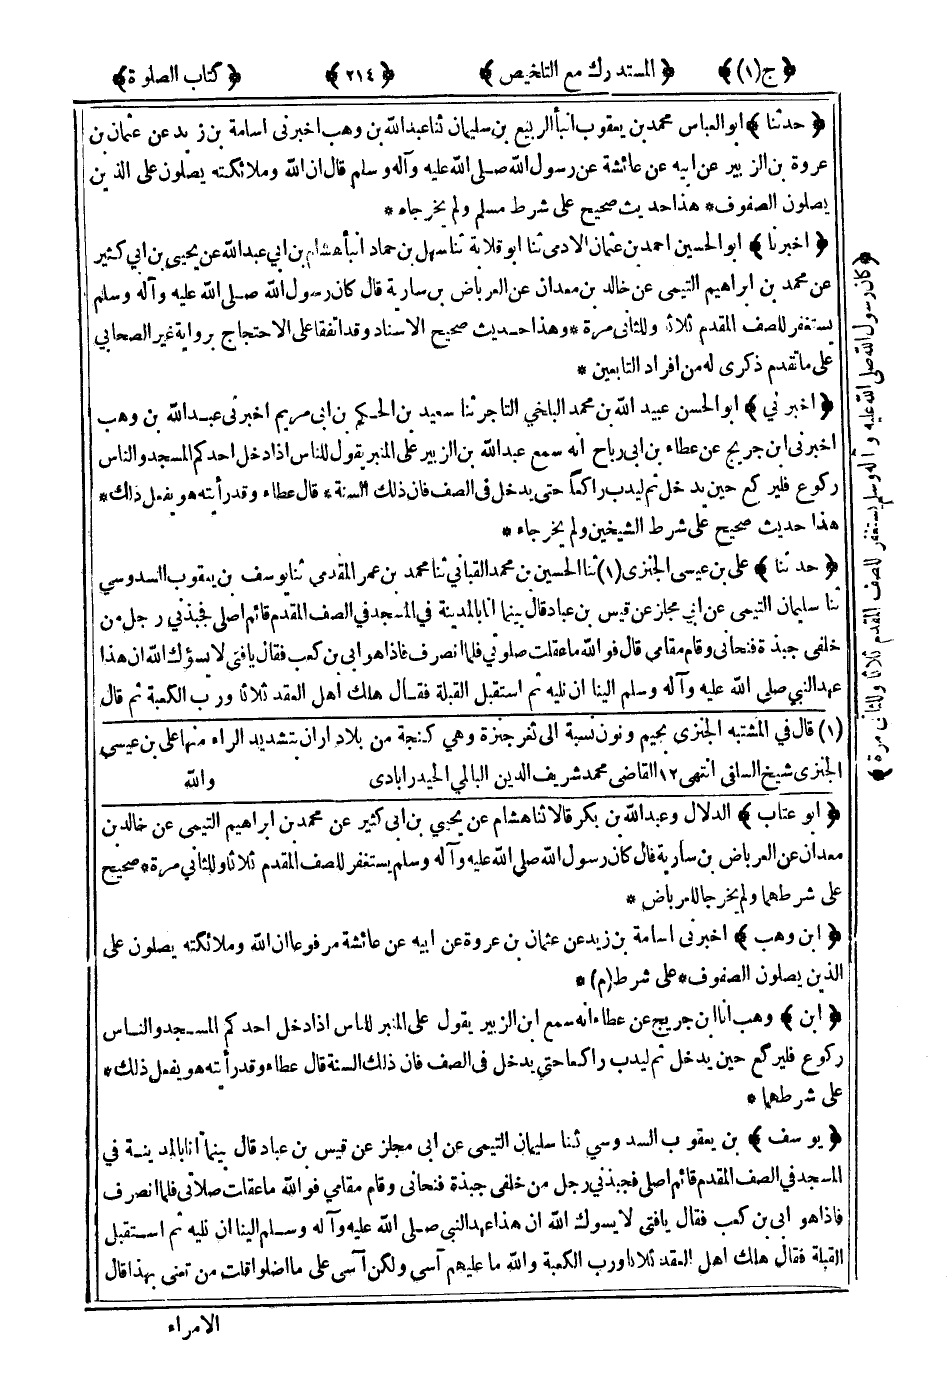 ﴿ ج (١) ﴾ ﴿ المستدرك مع التلخيص ﴾ ﴿ ٢١٤ ﴾ ﴿ كتاب الصلوة ﴾
﴿ حدثنا ﴾ ابو العباس محمد بن يعقوب انبأ الربيع بن سليمان ثنا عبد الله بن وهب اخبرنى اسامة بن زيد عن عثمان بن
عروة بن الزبير عن ابيه عن عائشة عن رسول الله صلى الله عليه وآله وسلم قال ان الله وملائكته يصلون على الذين
يصلون الصفوف * هذا حديث صحيح على شرط مسلم ولم يخرجاه *
﴿ اخبرنا ﴾ ابو الحسين احمد بن عثمان الادمى ثنا ابو قلابة ثنا سهل بن حماد انبأ هشام بن ابي عبد الله عن يحيى بن ابي كثير
عن محمد بن ابراهيم التيمى عن خالد بن معدان عن العرباض بن سارية قال كان رسول الله صلى الله عليه وآله وسلم
يستغفر للصف المقدم ثلاثا وللثانى مرة * وهذا حديث صحيح الاسناد وقد اتفقا على الاحتجاج برواية غير الصحابي
على ما تقدم ذكرى له من افراد التابعين *
﴿ اخبرني ﴾ ابو الحسن عبيد الله بن محمد البلخي التاجر ثنا سعيد بن الحكيم بن ابى مريم اخبرنى عبد الله بن وهب
اخبرنى ابن جريج عن عطاء بن ابى رباح انه سمع عبد الله بن الزبير على المنبر يقول للناس اذا دخل احدكم المسجد والناس
ركوع فليركع حين يدخل ثم ليدب راكعا حتى يدخل فى الصف فان ذلك السنة * قال عطاء وقد رأيته هو يفعل ذلك *
هذا حديث صحيح على شرط الشيخين ولم يخرجاه *
﴿ حدثنا ﴾ على بن عيسى الجنزى (١) ثنا الحسين بن محمد القباني ثنا محمد بن عمر المقدمي ثنا يوسف بن يعقوب السدوسي
ثنا سليمان التيمى عن ابي مجلز عن قيس بن عباد قال بينما انا بالمدينة في المسجد في الصف المقدم قائم اصلى فجبذني رجل من
خلفى جبذة فنحانى وقام مقامى قال فوالله ما عقلت صلوتي فلما انصرف فاذا هو ابى بن كعب فقال يا فتى لا يسؤك الله ان هذا
عهد النبي صلى الله عليه وآله وسلم الينا ان نليه ثم استقبل القبلة فقال هلك اهل العقد ثلاثا ورب الكعبة ثم قال
(١) قال في المشتبه الجنزى بجيم ونون نسبة الى ثغر جنزة وهي كنجة من بلاد اران بتشديد الراء منها على بن عيسى
الجنزى شيخ السلفى انتهى ١٢ القاضى محمد شريف الدين البالمي الحيدرابادى
والله
﴿ ابو عتاب ﴾ الدلال وعبد الله بن بكر قالا ثنا هشام عن يحيي بن ابى كثير عن محمد بن ابراهيم التيمى عن خالد بن
معدان عن العرباض بن سارية قال كان رسول الله صلى الله عليه وآله وسلم يستغفر للصف المقدم ثلاثا وللثاني مرة * صحيح
على شرطهما ولم يخرجا للعرباض *
﴿ ابن وهب ﴾ اخبرنى اسامة بن زيد عن عثمان بن عروة عن ابيه عن عائشة مرفوعا ان الله وملائكته يصلون على
الذين يصلون الصفوف * على شرط (م) *
﴿ ابن ﴾ وهب انا ابن جريج عن عطاء انه سمع ابن الزبير يقول على المنبر للناس اذا دخل احدكم المسجد والناس
ركوع فليركع حين يدخل ثم ليدب راكعا حتى يدخل فى الصف فان ذلك السنة قال عطاء وقد رأيته هو يفعل ذلك *
على شرطهما *
﴿ يوسف ﴾ بن يعقوب السدوسي ثنا سليمان التيمى عن ابى مجلز عن قيس بن عباد قال بينما انا بالمدينة في
المسجد في الصف المقدم قائم اصلى فجبذني رجل من خلفى جبذة فنحانى وقام مقامي فوالله ما عقلت صلاتى فلما انصرف
فاذا هو ابى بن كعب فقال يافتي لا يسوك الله ان هذا عهد النبي صلى الله عليه وآله وسلم الينا ان نليه ثم استقبل
القبلة فقال هلك اهل العقد ثلاثا ورب الكعبة والله ما عليهم آسي ولكن آسى على ما اضلوا قلت من تعنى بهذا قال
الامراء
﴿ كان رسول الله صلى الله عليه وآله وسلم يستغفر للصف المقدم ثلاثا وللثانى مرة ﴾